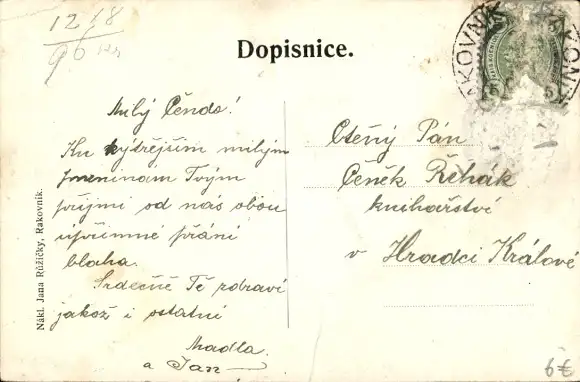 12/8
96
Dopisnice.
RAKOVNÍK
RAKONI
5 5
Milý Čendo!
Ku zýtřejším milým
Jmeninám Tvým
přijmi od nás obou
upřímné přání
blaha.
Srdečně Tě zdraví
jakož i ostatní
Madla
a Jan
Ctěný Pán
Čeněk Řehák
knihařství
v Hradci Králové
Nákl. Jana Růžičky, Rakovník.
6€